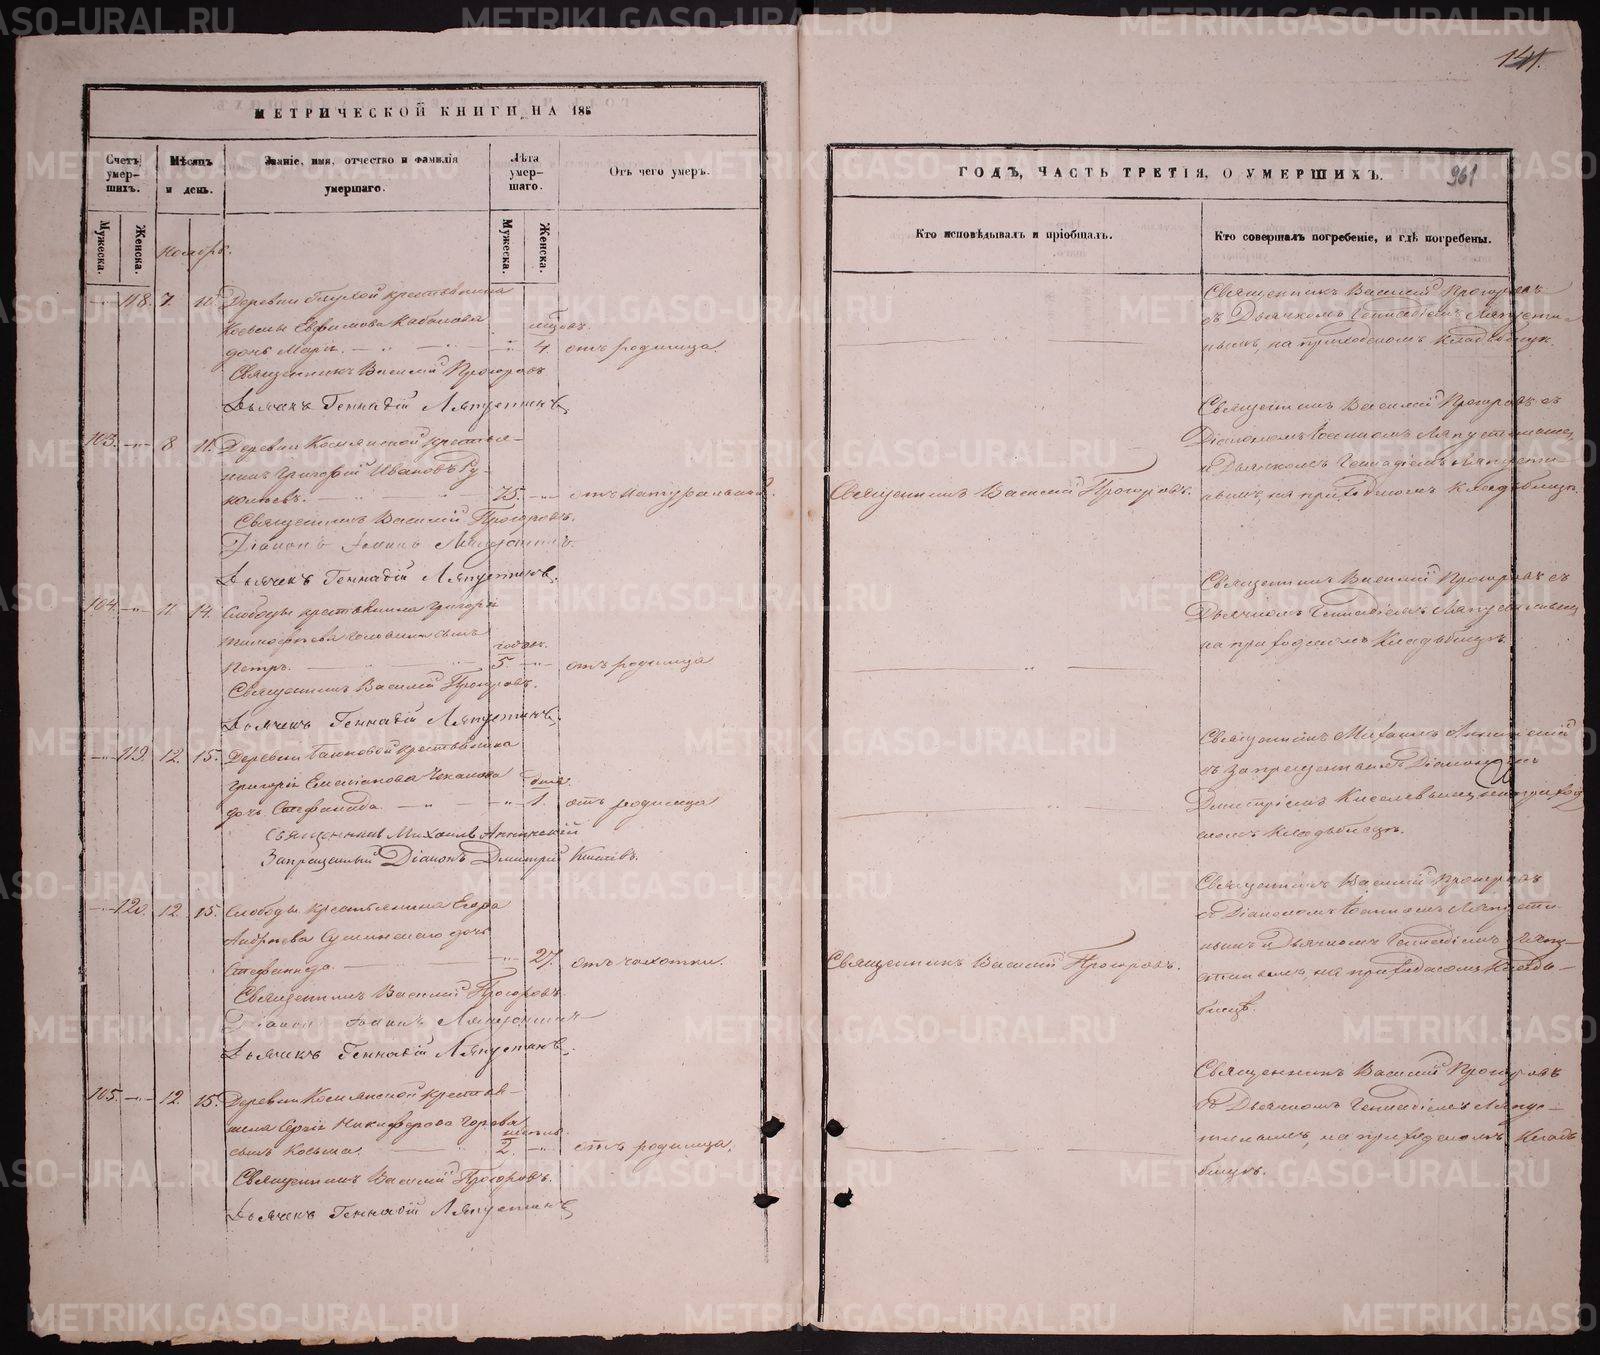 141.
МЕТРИЧЕСКОЙ КНИГИ НА 185
Счетъ умер-шихъ.
Мѣсяцъ и день.
Званіе, имя, отчество и фамилія умершаго.
Лѣта умер-шаго.
Отъ чего умеръ.
Мужеска.
Женска.
Мужеска.
Женска.
Ноябрь.
118. 7. 10. Деревни Глухой крестьянина
Косьмы Евфимова Кабакова
дочь Марія. 4. отъ родимца.
Священникъ Василій Прозоровъ
Дьячекъ Геннадій Ляпустинъ
103. 8 11. Деревни крестья-
нинъ Григорій Ивановъ
75. отъ натуральной.
Священникъ Василій Прозоровъ.
Діаконъ Іоаннъ Ляпустинъ
Дьячекъ Геннадій Ляпустинъ.
104. 11. 14. Слободы крестьянина Григорія
Тимофѣева сынъ годов.
Петръ. 5 отъ родимца
Священникъ Василій Прозоровъ.
Дьячекъ Геннадій Ляпустинъ.
119. 12. 15. Деревни крестьянина
Григорія Емеліанова Чекасова дня
дочь Стефанида. 1. отъ родимца
Священникъ Михаилъ Аннинскій
Запрещенный Діаконъ Димитрій Киселевъ.
120. 12. 15. Слободы крестьянина Егора
Андреева дочь
Стефанида. 27. отъ чахотки.
Священникъ Василій Прозоровъ.
Діаконъ Іоаннъ Ляпустинъ
Дьячекъ Геннадій Ляпустинъ.
105. 12. 15. Деревни крестья-
нина Сергія Никифорова
сынъ Косьма. 2. отъ родимца.
Священникъ Василій Прозоровъ.
Дьячекъ Геннадій Ляпустинъ
ГОДЪ, ЧАСТЬ ТРЕТІЯ, О УМЕРШИХЪ.
961
Кто исповѣдывалъ и пріобщалъ.
Кто совершалъ погребеніе, и гдѣ погребены.
Священникъ Василій Прозоровъ
съ Дьячкомъ Геннадіемъ Ляпусти-
нымъ, на приходскомъ кладбищѣ.
Священникъ Василій Прозоровъ съ
Діакономъ Іоанномъ Ляпустинымъ,
и Дьячкомъ Геннадіемъ Ляпусти-
Священникъ Василій Прозоровъ. нымъ, на приходскомъ кладбищѣ.
Священникъ Василій Прозоровъ съ
Дьячкомъ Геннадіемъ Ляпустинымъ
на приходскомъ кладбищѣ.
Священникъ Михаилъ Аннинскій
съ запрещеннымъ Діакономъ
Димитріемъ Киселевымъ, на приход
скомъ кладбищѣ.
Священникъ Василій Прозоровъ
съ Діакономъ Іоанномъ Ляпусти-
нымъ и Дьячкомъ Геннадіемъ Ляпу-
Священникъ Василій Прозоровъ. стинымъ, на приходскомъ кладби-
бищѣ.
Священникъ Василій Прозоровъ
съ Дьячкомъ Геннадіемъ Ляпус-
тинымъ, на приходскомъ клад
бищѣ.
METRIKI.GASO-URAL.RU